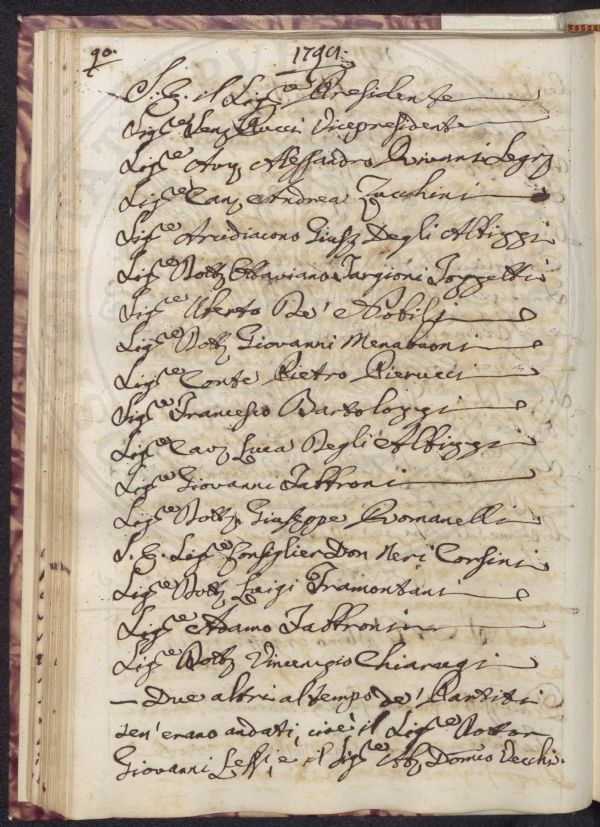 90. 1791.
S. E. il Sig.re Presidente
Sig.re Senr Pucci Vicepresidente
Sig.re Avvr Alessandro Rivani Segrr
Sig.re Canr Andrea Zucchini
Sig.re Arcidiacono Giusr Degli Albizzi
Sig.re Dottr Ottaviano Targioni Tozzetti
Sig.re Uberto De' Nobili
Sig.re Dottr Giovanni Menabuoni
Sig.re Conte Pietro Pierucci
Sig.re Francesco Bartolozzi
Sig.re Cavr Luca Degli Albizzi
Sig.re Giovanni Fabbroni
Sig.re Dottr Giuseppe Romanelli
S. E. Sig.re Consiglier Don Neri Corsini
Sig.re Dottr Luigi Tramontani
Sig.re Adamo Fabbroni
Sig.re Dottr Vincenzio Chiarugi
— Due altri al tempo de' Partiti
sen' erano andati, cioè il Sig.re Dottor
Giovanni Lessi, e il Sig.re Abr Domco Vecchi.